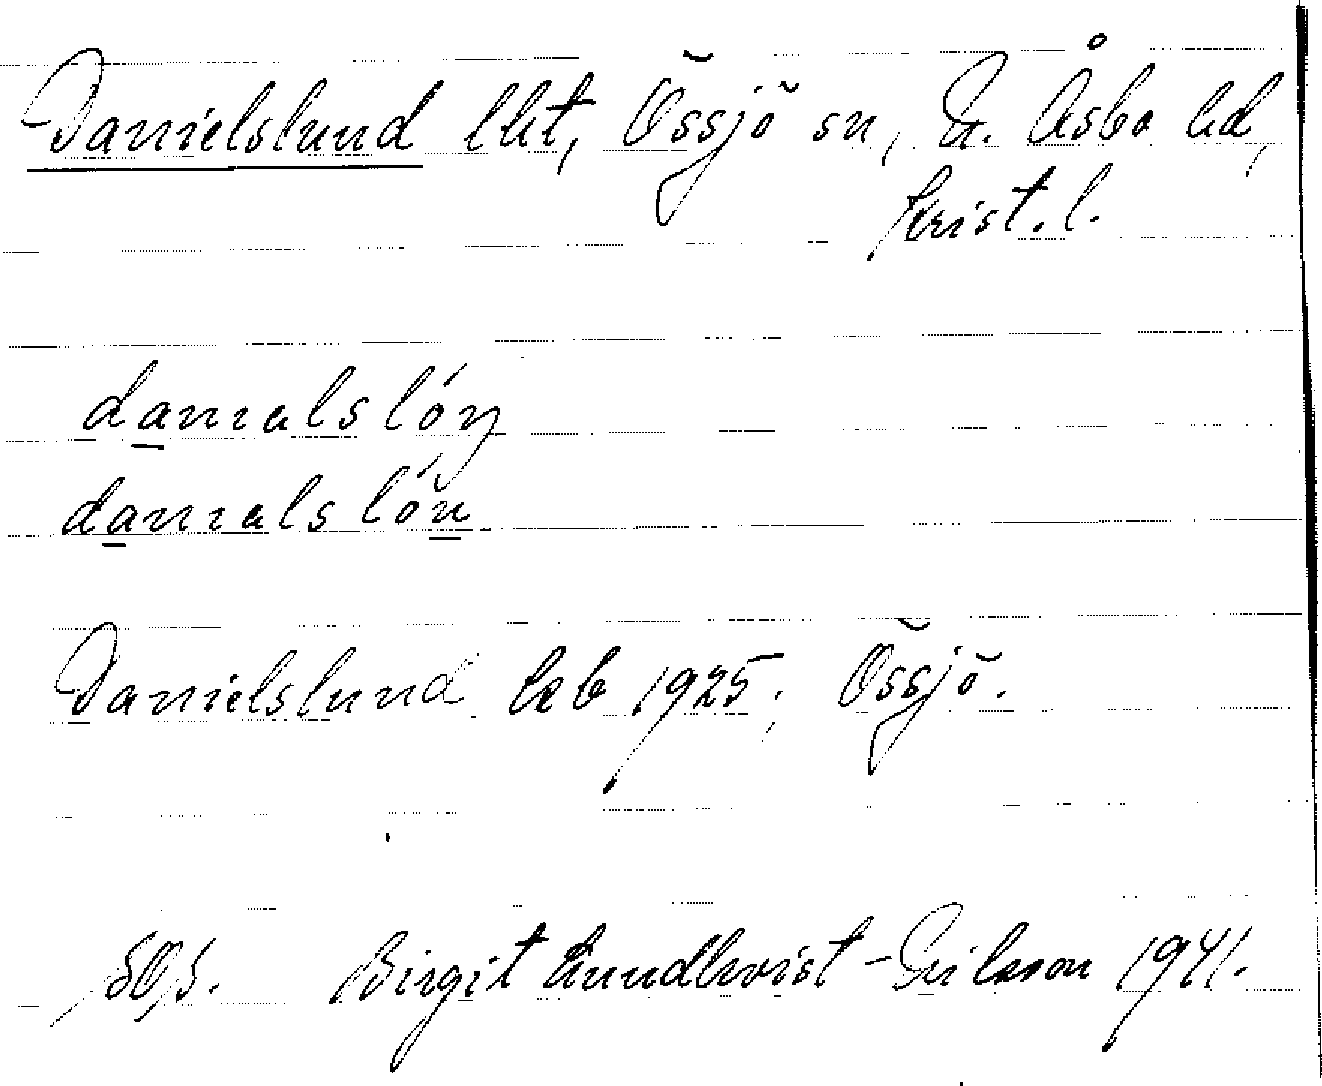 Danielslund lht, Össjö sn, N. Åsbo hd,
Krist. l.
danialslón
danialslón
Danielslund lsb 1925; Össjö.
Birgit Lundkvist-Nilsson 1941.